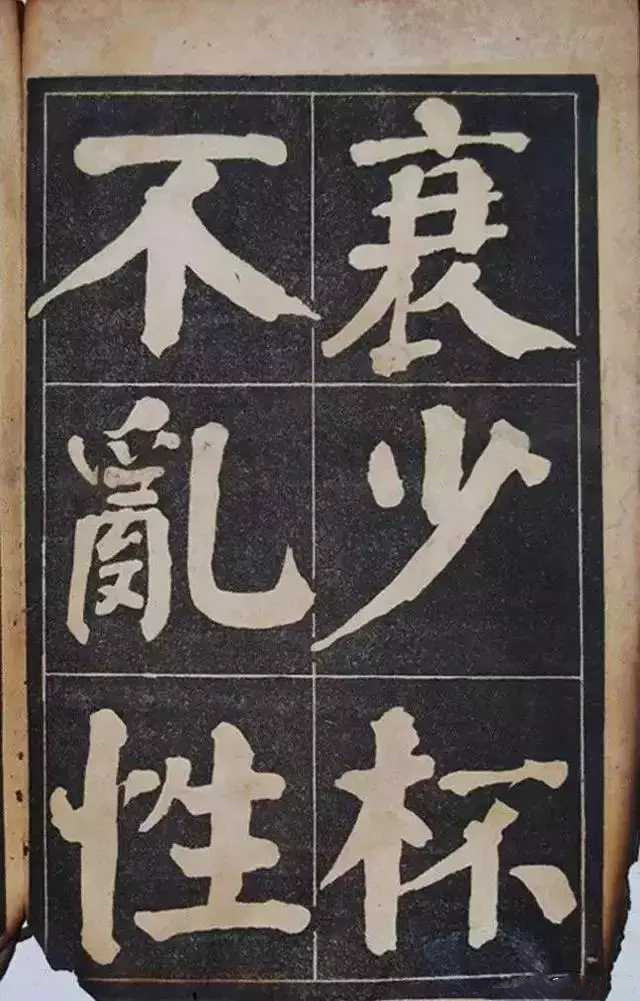 衰少杯
不亂性